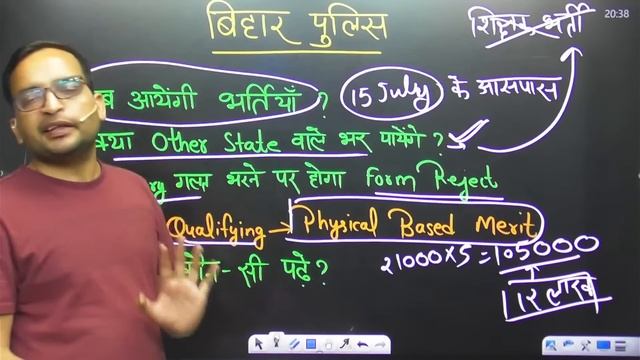 बिहार पुलिस
शिक्षक भर्ती
20:38
आयेंगी भर्तियाँ ? 15 July के आसपास
क्या Other State वाले भर पायेंगे ?
गलत भरने पर होगा Form Reject
Qualifying → Physical Based Merit
सी पढ़े ?
21000×5 = 105000
12 लाख